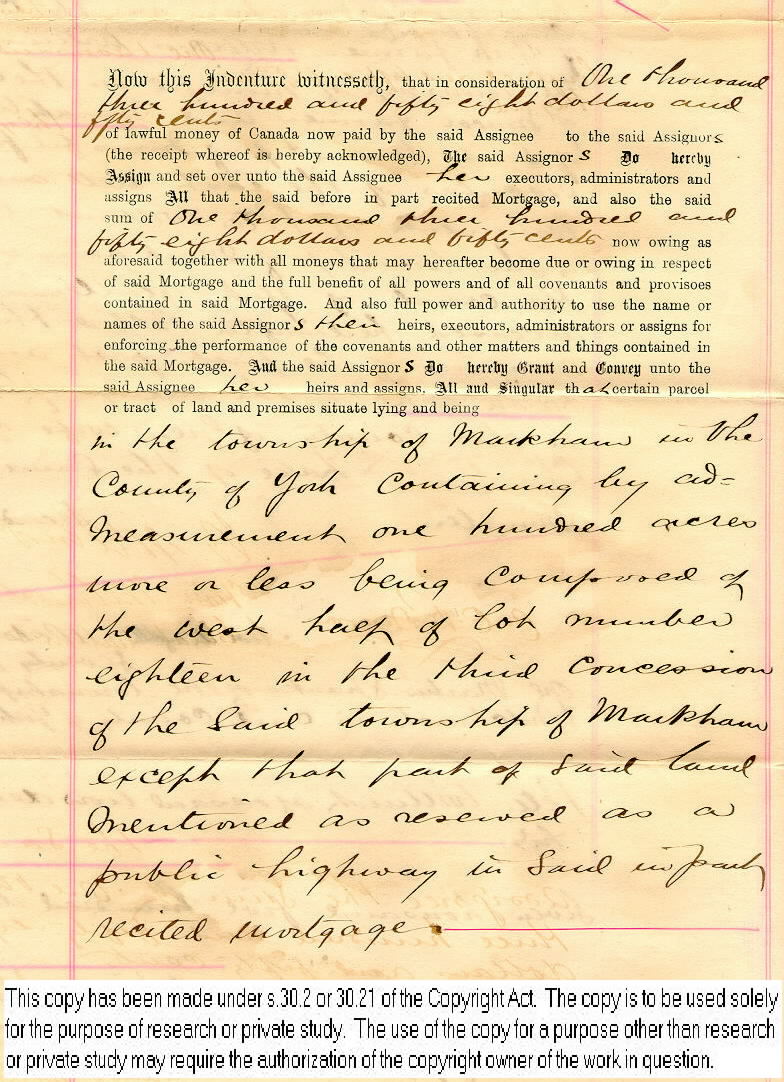 Now this Indenture witnesseth, that in consideration of One thousand
three hundred and fifty eight dollars and
fifty cents
of lawful money of Canada now paid by the said Assignee to the said Assignors
(the receipt whereof is hereby acknowledged), The said Assignor s Do hereby
Assign and set over unto the said Assignee her executors, administrators and
assigns All that the said before in part recited Mortgage, and also the said
sum of One thousand three hundred and
fifty eight dollars and fifty cents now owing as
aforesaid together with all moneys that may hereafter become due or owing in respect
of said Mortgage and the full benefit of all powers and of all covenants and provisoes
contained in said Mortgage. And also full power and authority to use the name or
names of the said Assignor s their heirs, executors, administrators or assigns for
enforcing the performance of the covenants and other matters and things contained in
the said Mortgage. And the said Assignor s Do hereby Grant and Convey unto the
said Assignee her heirs and assigns. All and Singular that certain parcel
or tract of land and premises situate lying and being
in the township of Markham in the
County of York Containing by ad=
measurement one hundred acres
more or less being composed of
the west half of lot number
eighteen in the third Concession
of the Said township of Markham
except that part of said land
mentioned as reserved as a
public highway in said in part
recited mortgage.
This copy has been made under s.30.2 or 30.21 of the Copyright Act. The copy is to be used solely
for the purpose of research or private study. The use of the copy for a purpose other than research
or private study may require the authorization of the copyright owner of the work in question.